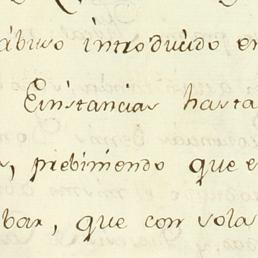 abuso introducido en
Einstancias hasta
, prebiniendo que e
bar, que con sola